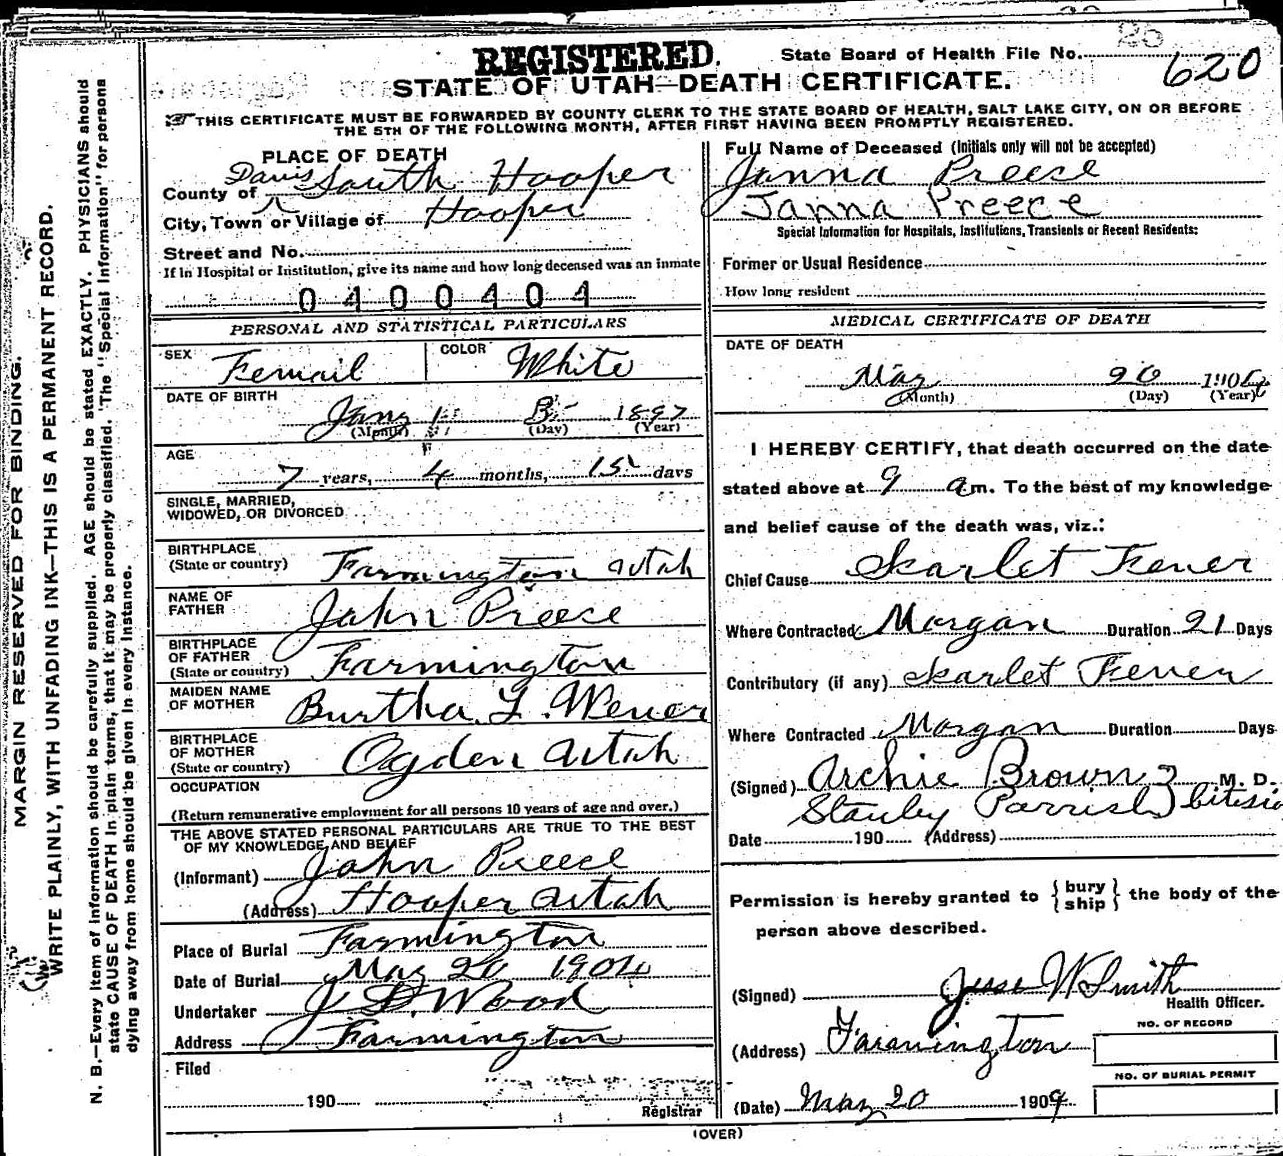 REGISTERED.
State Board of Health File No. 620
STATE OF UTAH—DEATH CERTIFICATE.
THIS CERTIFICATE MUST BE FORWARDED BY COUNTY CLERK TO THE STATE BOARD OF HEALTH, SALT LAKE CITY, ON OR BEFORE
THE 5TH OF THE FOLLOWING MONTH, AFTER FIRST HAVING BEEN PROMPTLY REGISTERED.
MARGIN RESERVED FOR BINDING.
WRITE PLAINLY, WITH UNFADING INK—THIS IS A PERMANENT RECORD.
N. B.—Every item of information should be carefully supplied. AGE should be stated EXACTLY. PHYSICIANS should
state CAUSE OF DEATH in plain terms, that it may be properly classified. The "Special Information" for persons
dying away from home should be given in every instance.
PLACE OF DEATH
County of Davis South Hooper
City, Town or Village of Hooper
Street and No.
If in Hospital or Institution, give its name and how long deceased was an inmate
0400404
PERSONAL AND STATISTICAL PARTICULARS
SEX Femail COLOR White
DATE OF BIRTH
1897
(Month) (Day) (Year)
AGE
7 years, 4 months, 15 days
SINGLE, MARRIED,
WIDOWED, OR DIVORCED
BIRTHPLACE
(State or country) Farmington Utah
NAME OF
FATHER John Preece
BIRTHPLACE
OF FATHER
(State or country) Farmington
MAIDEN NAME
OF MOTHER Burtha L. Wener
BIRTHPLACE
OF MOTHER
(State or country) Ogden Utah
OCCUPATION
(Return remunerative employment for all persons 10 years of age and over.)
THE ABOVE STATED PERSONAL PARTICULARS ARE TRUE TO THE BEST
OF MY KNOWLEDGE AND BELIEF
(Informant) John Preece
(Address) Hooper Utah
Place of Burial Farmington
Date of Burial May 20 1904
Undertaker J D. Wood
Address Farmington
Filed
190
Registrar
Full Name of Deceased (Initials only will not be accepted)
Janna Preece
Janna Preece
Special Information for Hospitals, Institutions, Transients or Recent Residents:
Former or Usual Residence
How long resident
MEDICAL CERTIFICATE OF DEATH
DATE OF DEATH
May 20 1904
(Month) (Day) (Year)
I HEREBY CERTIFY, that death occurred on the date
stated above at 9 a m. To the best of my knowledge
and belief cause of the death was, viz.:
Chief Cause Skarlet Fever
Where Contracted Morgan Duration 21 Days
Contributory (if any) Skarlet Fever
Where Contracted Morgan Duration Days
(Signed) Archie Brown M. D.
Stanley Parrish
Date 190 (Address)
Permission is hereby granted to {bury ship} the body of the
person above described.
(Signed) Jesse W Smith
Health Officer.
NO. OF RECORD
(Address) Farmington
NO. OF BURIAL PERMIT
(Date) May 20 1904
(OVER)